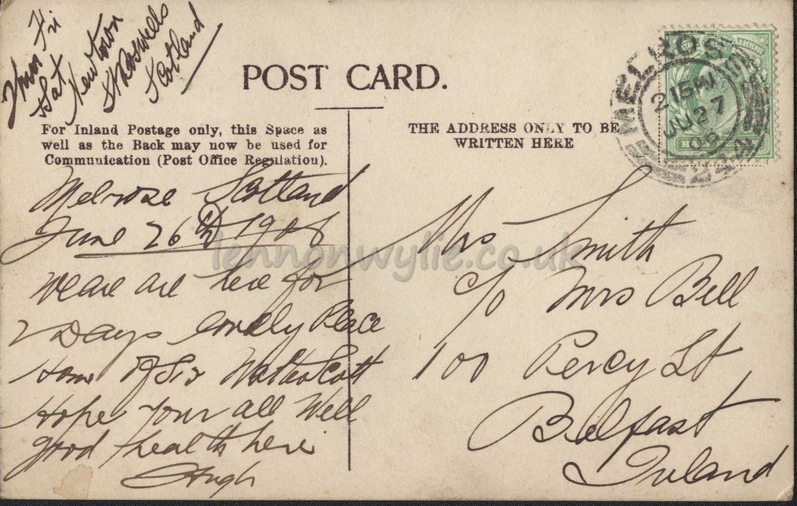 Fri
Sat
Newtown
St Boswells
Scotland
POST CARD.
For Inland Postage only, this Space as
well as the Back may now be used for
Communication (Post Office Regulation).
THE ADDRESS ONLY TO BE
WRITTEN HERE
MELROSE
2 15 PM
JU 27
08
Melrose Scotland
June 26th 1908
We are here for
2 Days lovely Place
Home of Sir Walter Scott
Hope your all Well
good health here
Hugh
Mrs Smith
c/o Mrs Bell
100 Percy St
Belfast
Ireland
lennonwylie.co.uk